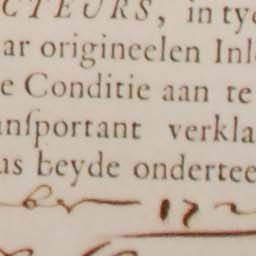 CTEURS, in ty
ar origineelen Inl
e Conditie aan te
anſportant verkla
us beyde ondertee
ber 17